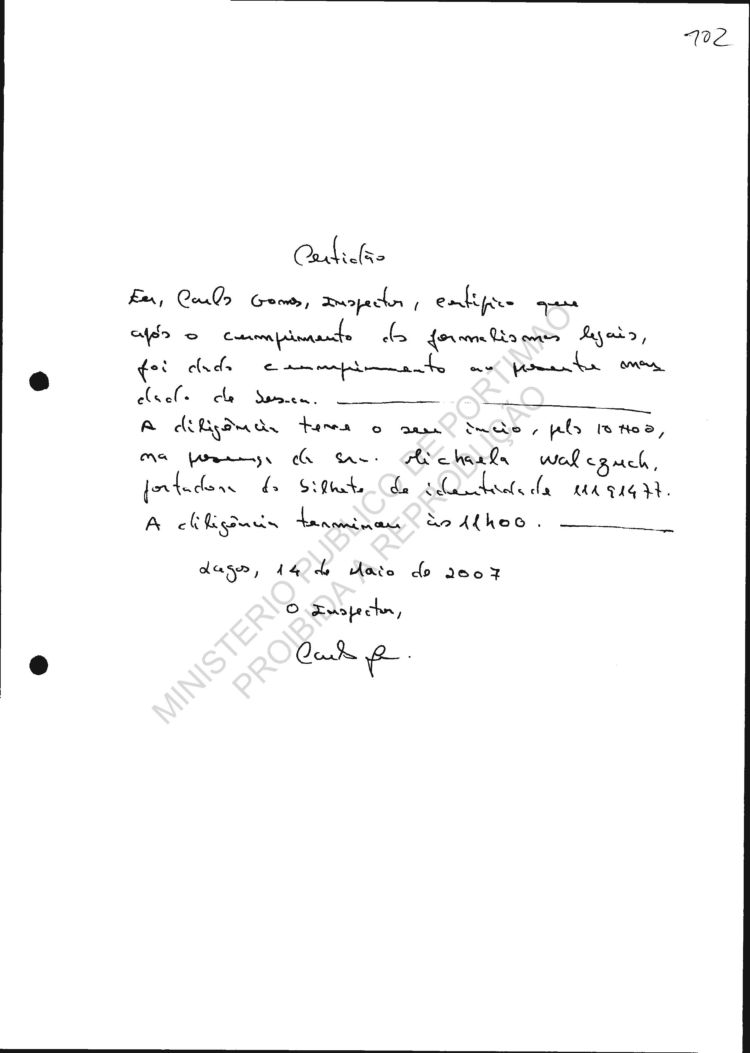 102
Certidão
Eu, Carlos Gomes, Inspector, certifico que
após o cumprimento dos formalismos legais,
foi dado cumprimento ao presente man
dado de busca.
A diligência teve o seu início, pelas 10H00,
na presença da sra. Michaela Walczuch,
portadora do bilhete de identidade 11191477.
A diligência terminou às 11h00.
Lagos, 14 de Maio de 2007
O Inspector,
MINISTERIO PUBLICO DE PORTIMAO
PROIBIDA A REPRODUÇÃO